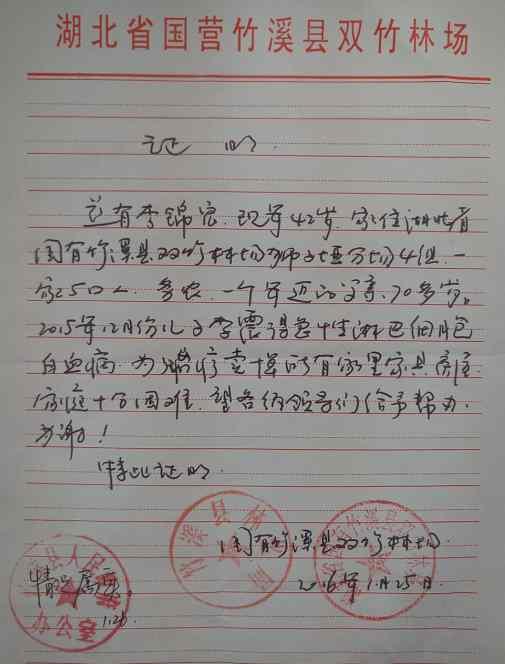 湖北省国营竹溪县双竹林场
证明
兹有李锦宏,现年42岁,家住湖北省
国有竹溪县双竹林场狮子垭分场4组,一
家5口人,务农,一个年迈的父亲,70多岁。
2015年12月份儿子李震得急性淋巴细胞
白血病,为治疗卖掉所有家里家具房产
家庭十分困难,望各级领导们给予帮助
为谢!
特此证明.
国有竹溪县双竹林场
2016年1月25日.
情况属实.
1.26
办公室